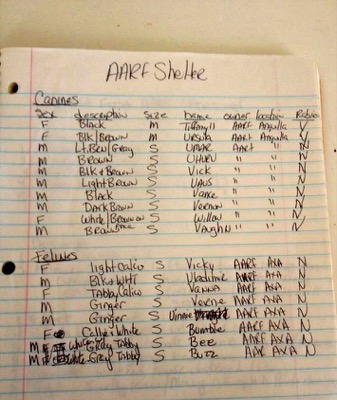 AARF Shelter
Canines
Sex description Size Name owner location Rabies
F Black M Tiffany II AARF Anguilla Y
F Blk/Brown M Ursula AARF Anguilla N
M Lt.Brn/Gray S Umar AARF " N
M Brown S " " N
M Blk & Brown S Vick " " N
M Light Brown S " " N
M Black S Vance " " N
M Dark Brown S Vernon " " N
F White/Brown S Willow " " N
M Brown S Vaughn " " N
Felines
F light Calico S Vicky AARF AXA N
M Blk & Wht S Vladimir AARF AXA N
F Tabby Calico S Vanna AARF AXA N
M Ginger S Verne AARF AXA N
M Ginger S Vinnie AARF AXA N
F White S Bumble AARF AXA N
M White Gray Tabby S Bee AARF AXA N
M White Grey Tabby S Buzz AARF AXA N